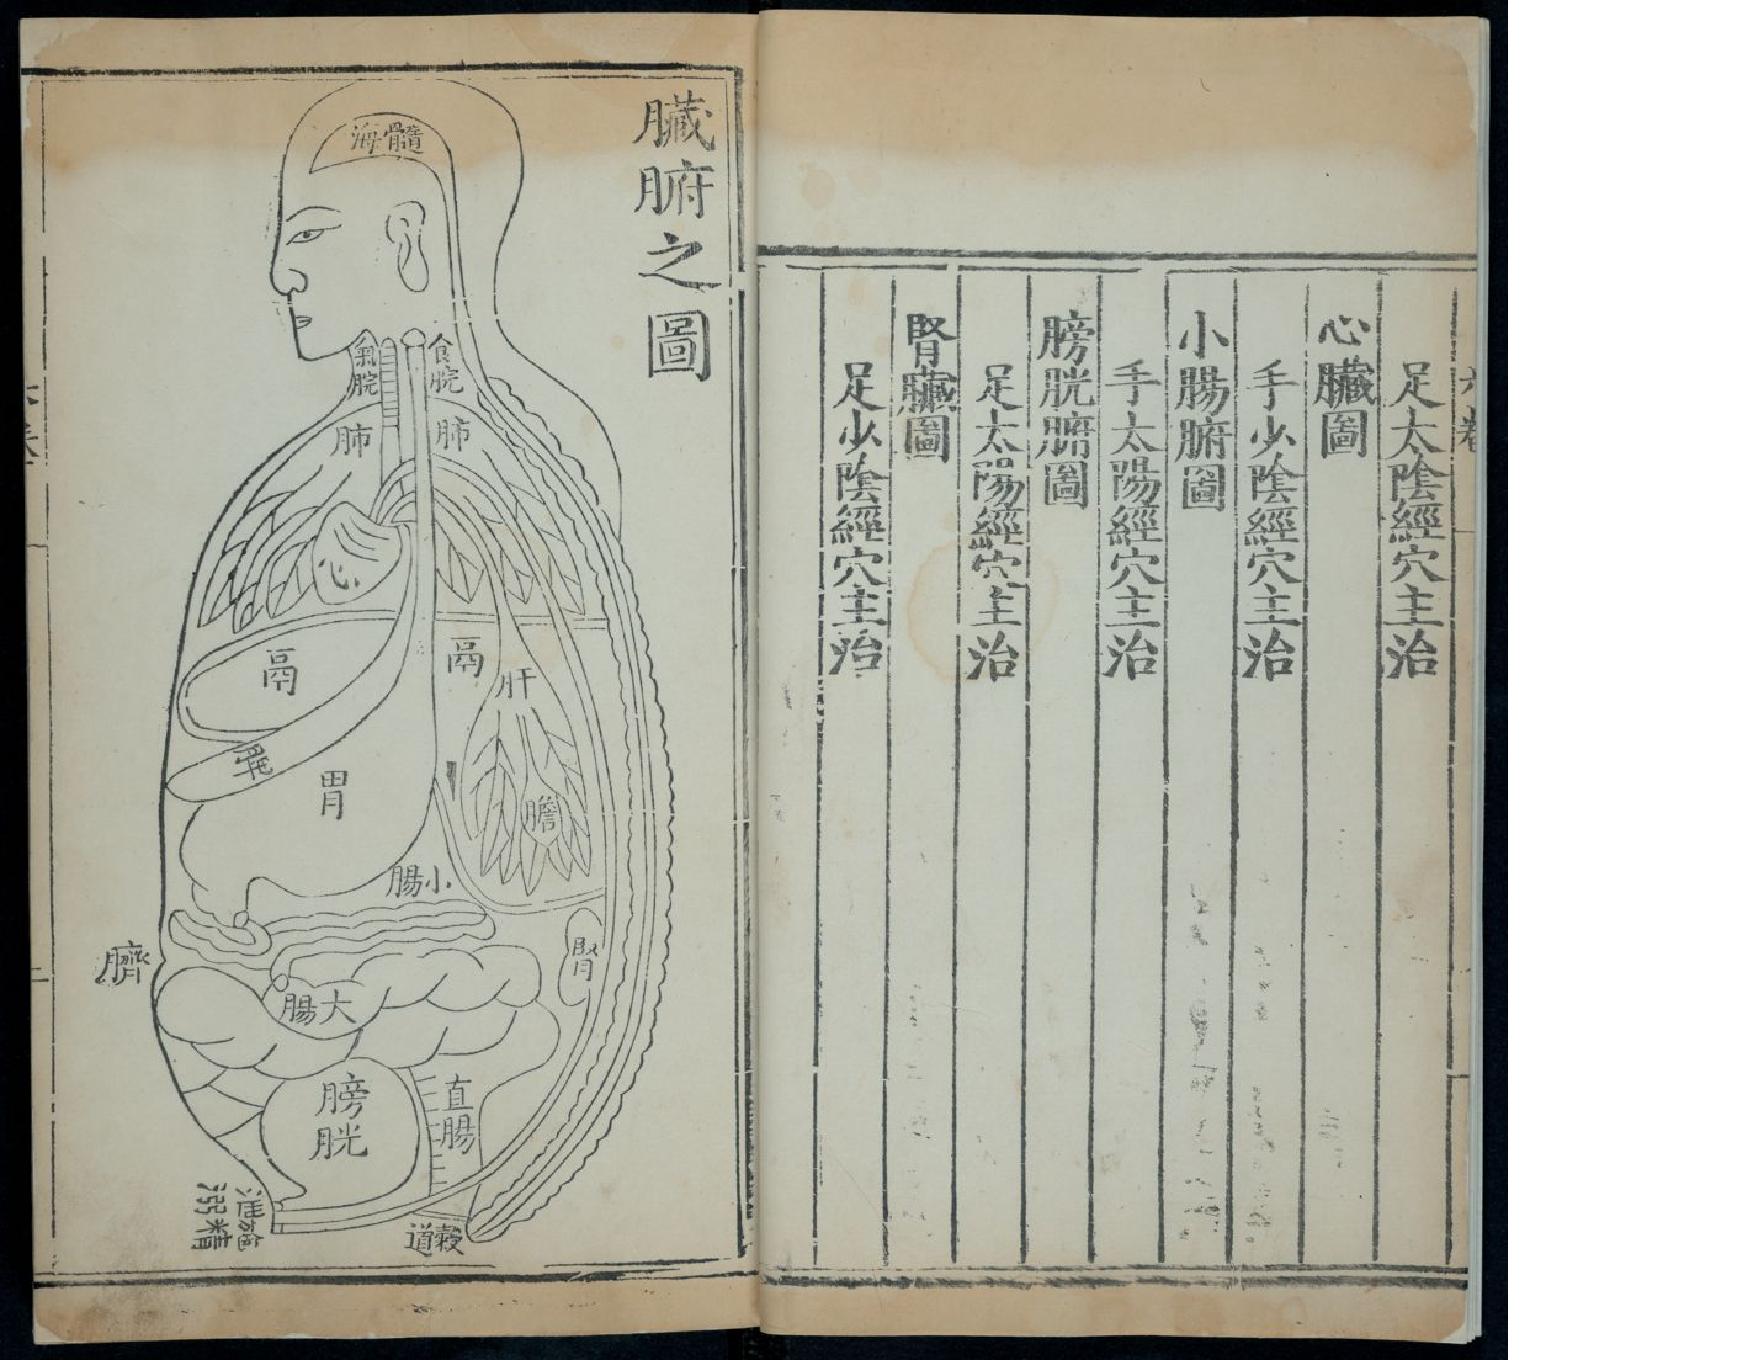 足太陰經穴主治
心臟圖
手少陰經穴主治
小腸腑圖
手太陽經穴主治
膀胱腑圖
足太陽經穴主治
腎臟圖
足少陰經穴主治
臟腑之圖
髓海
食脘
氣脘
肺
肺
心
鬲
鬲
肝
膽
胃
小腸
腎
臍
大腸
膀胱
直腸
穀道